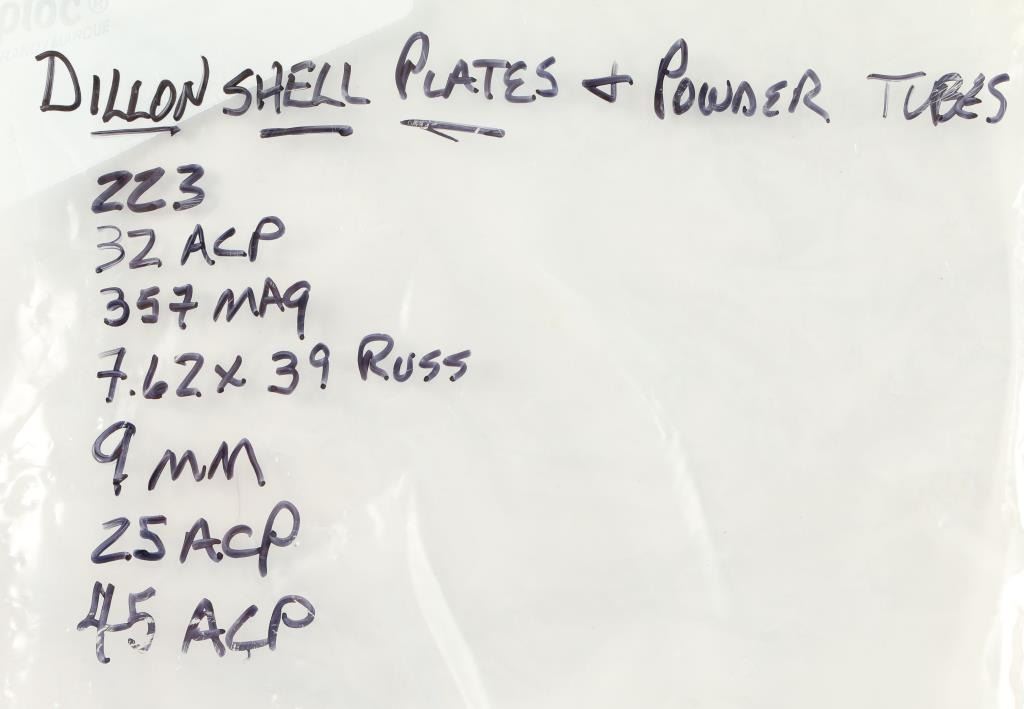 ploc®
DILLON SHELL PLATES + POWDER TUBES
223
32 ACP
357 MAG
7.62 x 39 RUSS
9 MM
25 ACP
45 ACP